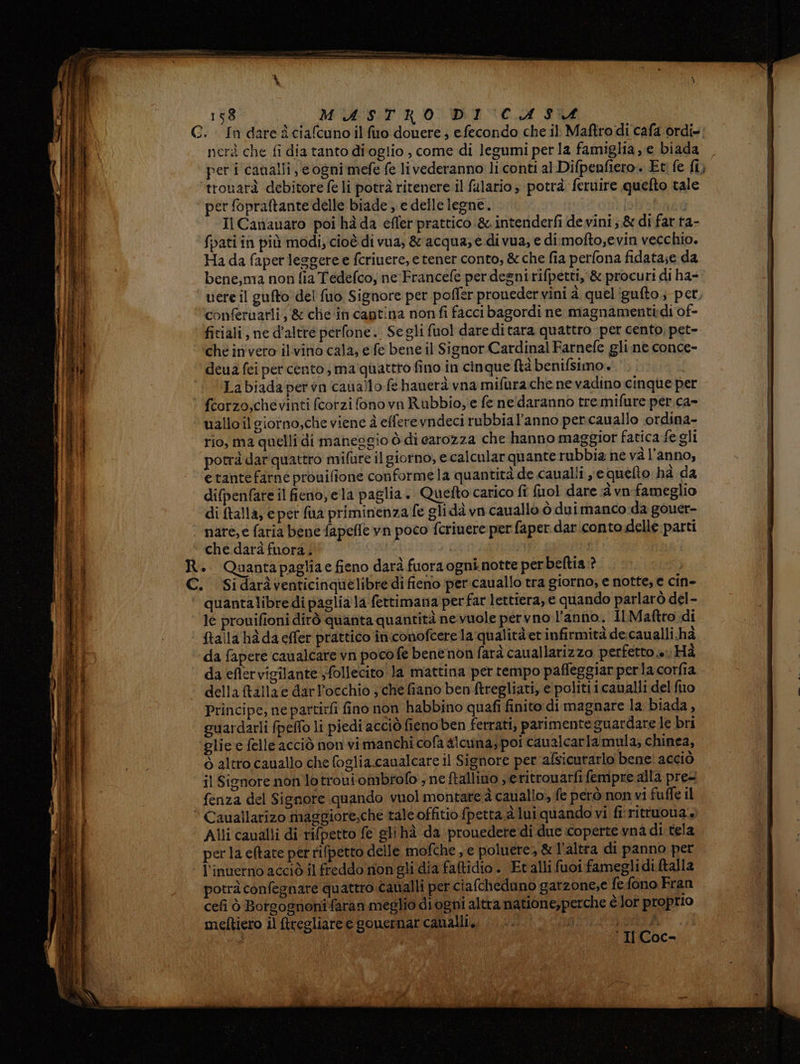 158 MASTRO DI CASA
C. In dare à ciaſcuno il ſuo douere, e ſecondo che il Maſtro di caſa ordi-
nerà che ſi dia tanto di oglio, come di legumi per la famiglia, e biada
per i caualli, e ogni meſe ſe li vederanno li conti al Diſpenſiero. Et ſe ſi
trouarà debitore ſe li potrà ritenere il ſalario, potrà ſeruire queſto tale
per ſopraſtante delle biade, e delle legne.
Il Canauaro poi hà da eſſer prattico & intenderſi de vini, & di far ra-
ſpati in più modi, cioè di vua, & acqua, e di vua, e di moſto, e vin vecchio.
Ha da ſaper leggere e ſcriuere, e tener conto, & che ſia perſona fidata, e da
bene, ma non ſia Tedeſco, ne Franceſe per degni riſpetti, & procuri di ha-
uere il guſto del ſuo Signore per poſſer proueder vini à quel guſto, per
conſeruarli, & che in cantina non ſi facci bagordi ne magnamenti di of-
fitiali, ne d'altre perſone. Se gli ſuol dare di tara quattro per cento, per-
che in vero il vino cala, e ſe bene il Signor Cardinal Farneſe gli ne conce-
deua ſei per cento, ma quattro fino in cinque ſtà beniſsimo.
La biada per vn cauallo ſe hauerà vna miſura che ne vadino cinque per
ſcorzo, che vinti ſcorzi ſono vn Rubbio, e ſe ne daranno tre miſure per ca-
uallo il giorno, che viene à eſſere vndeci rubbia l'anno per cauallo ordina-
rio, ma quelli di maneggio ò di carozza che hanno maggior fatica ſe gli
potrà dar quattro miſure il giorno, e calcular quante rubbia ne và l'anno,
e tante farne prouiſione conforme la quantità de caualli, e queſto hà da
diſpenſare il fieno, e la paglia. Queſto carico ſi ſuol dare à vn fameglio
di ſtalla, e per ſua priminenza ſe gli dà vn cauallo ò dui manco da gouer-
nare, e ſaria bene ſapeſſe vn poco ſcriuere per ſaper dar conto delle parti
che darà fuora.
R. Quanta paglia e fieno darà fuora ogni notte per beſtia?
C. Si darà venticinque libre di fieno per cauallo tra giorno, e notte, e cin-
quanta libre di paglia la ſettimana per far lettiera, e quando parlarò del-
le prouiſioni dirò quanta quantità ne vuole per vno l'anno. Il Maſtro di
ſtalla hà da eſſer prattico in conoſcere la qualità et infirmità de caualli, hà
da ſapere caualcare vn poco ſe bene non ſarà cauallarizzo perfetto. Hà
da eſſer vigilante, ſollecito la mattina per tempo paſſeggiar per la corſia
della ſtalla e dar l'occhio, che ſiano ben ſtregliati, e politi i caualli del ſuo
Principe, ne partirſi fino non habbino quaſi finito di magnare la biada,
guardarli ſpeſſo li piedi acciò ſieno ben ferrati, parimente guardare le bri
glie e ſelle acciò non vi manchi coſa alcuna, poi caualcar la mula, chinea,
ò altro cauallo che ſoglia caualcare il Signore per aſsicurarlo bene acciò
il Signore non lo troui ombroſo, ne ſtallino, e ritrouarſi ſempre alla pre-
ſenza del Signore quando vuol montare à cauallo, ſe però non vi fuſſe il
Cauallarizo maggiore, che tale offitio ſpetta à lui quando vi ſi ritruoua.
Alli caualli di riſpetto ſe gli hà da prouedere di due coperte vna di tela
per la eſtate per riſpetto delle moſche, e poluere, & l'altra di panno per
l'inuerno acciò il freddo non gli dia faſtidio. Et alli ſuoi famegli di ſtalla
potrà conſegnare quattro caualli per ciaſcheduno garzone, e ſe ſono Fran
ceſi ò Borgognoni faran meglio di ogni altra natione, perche è lor proprio
meſtiero il ſtregliare e gouernar caualli.
Il Coc-